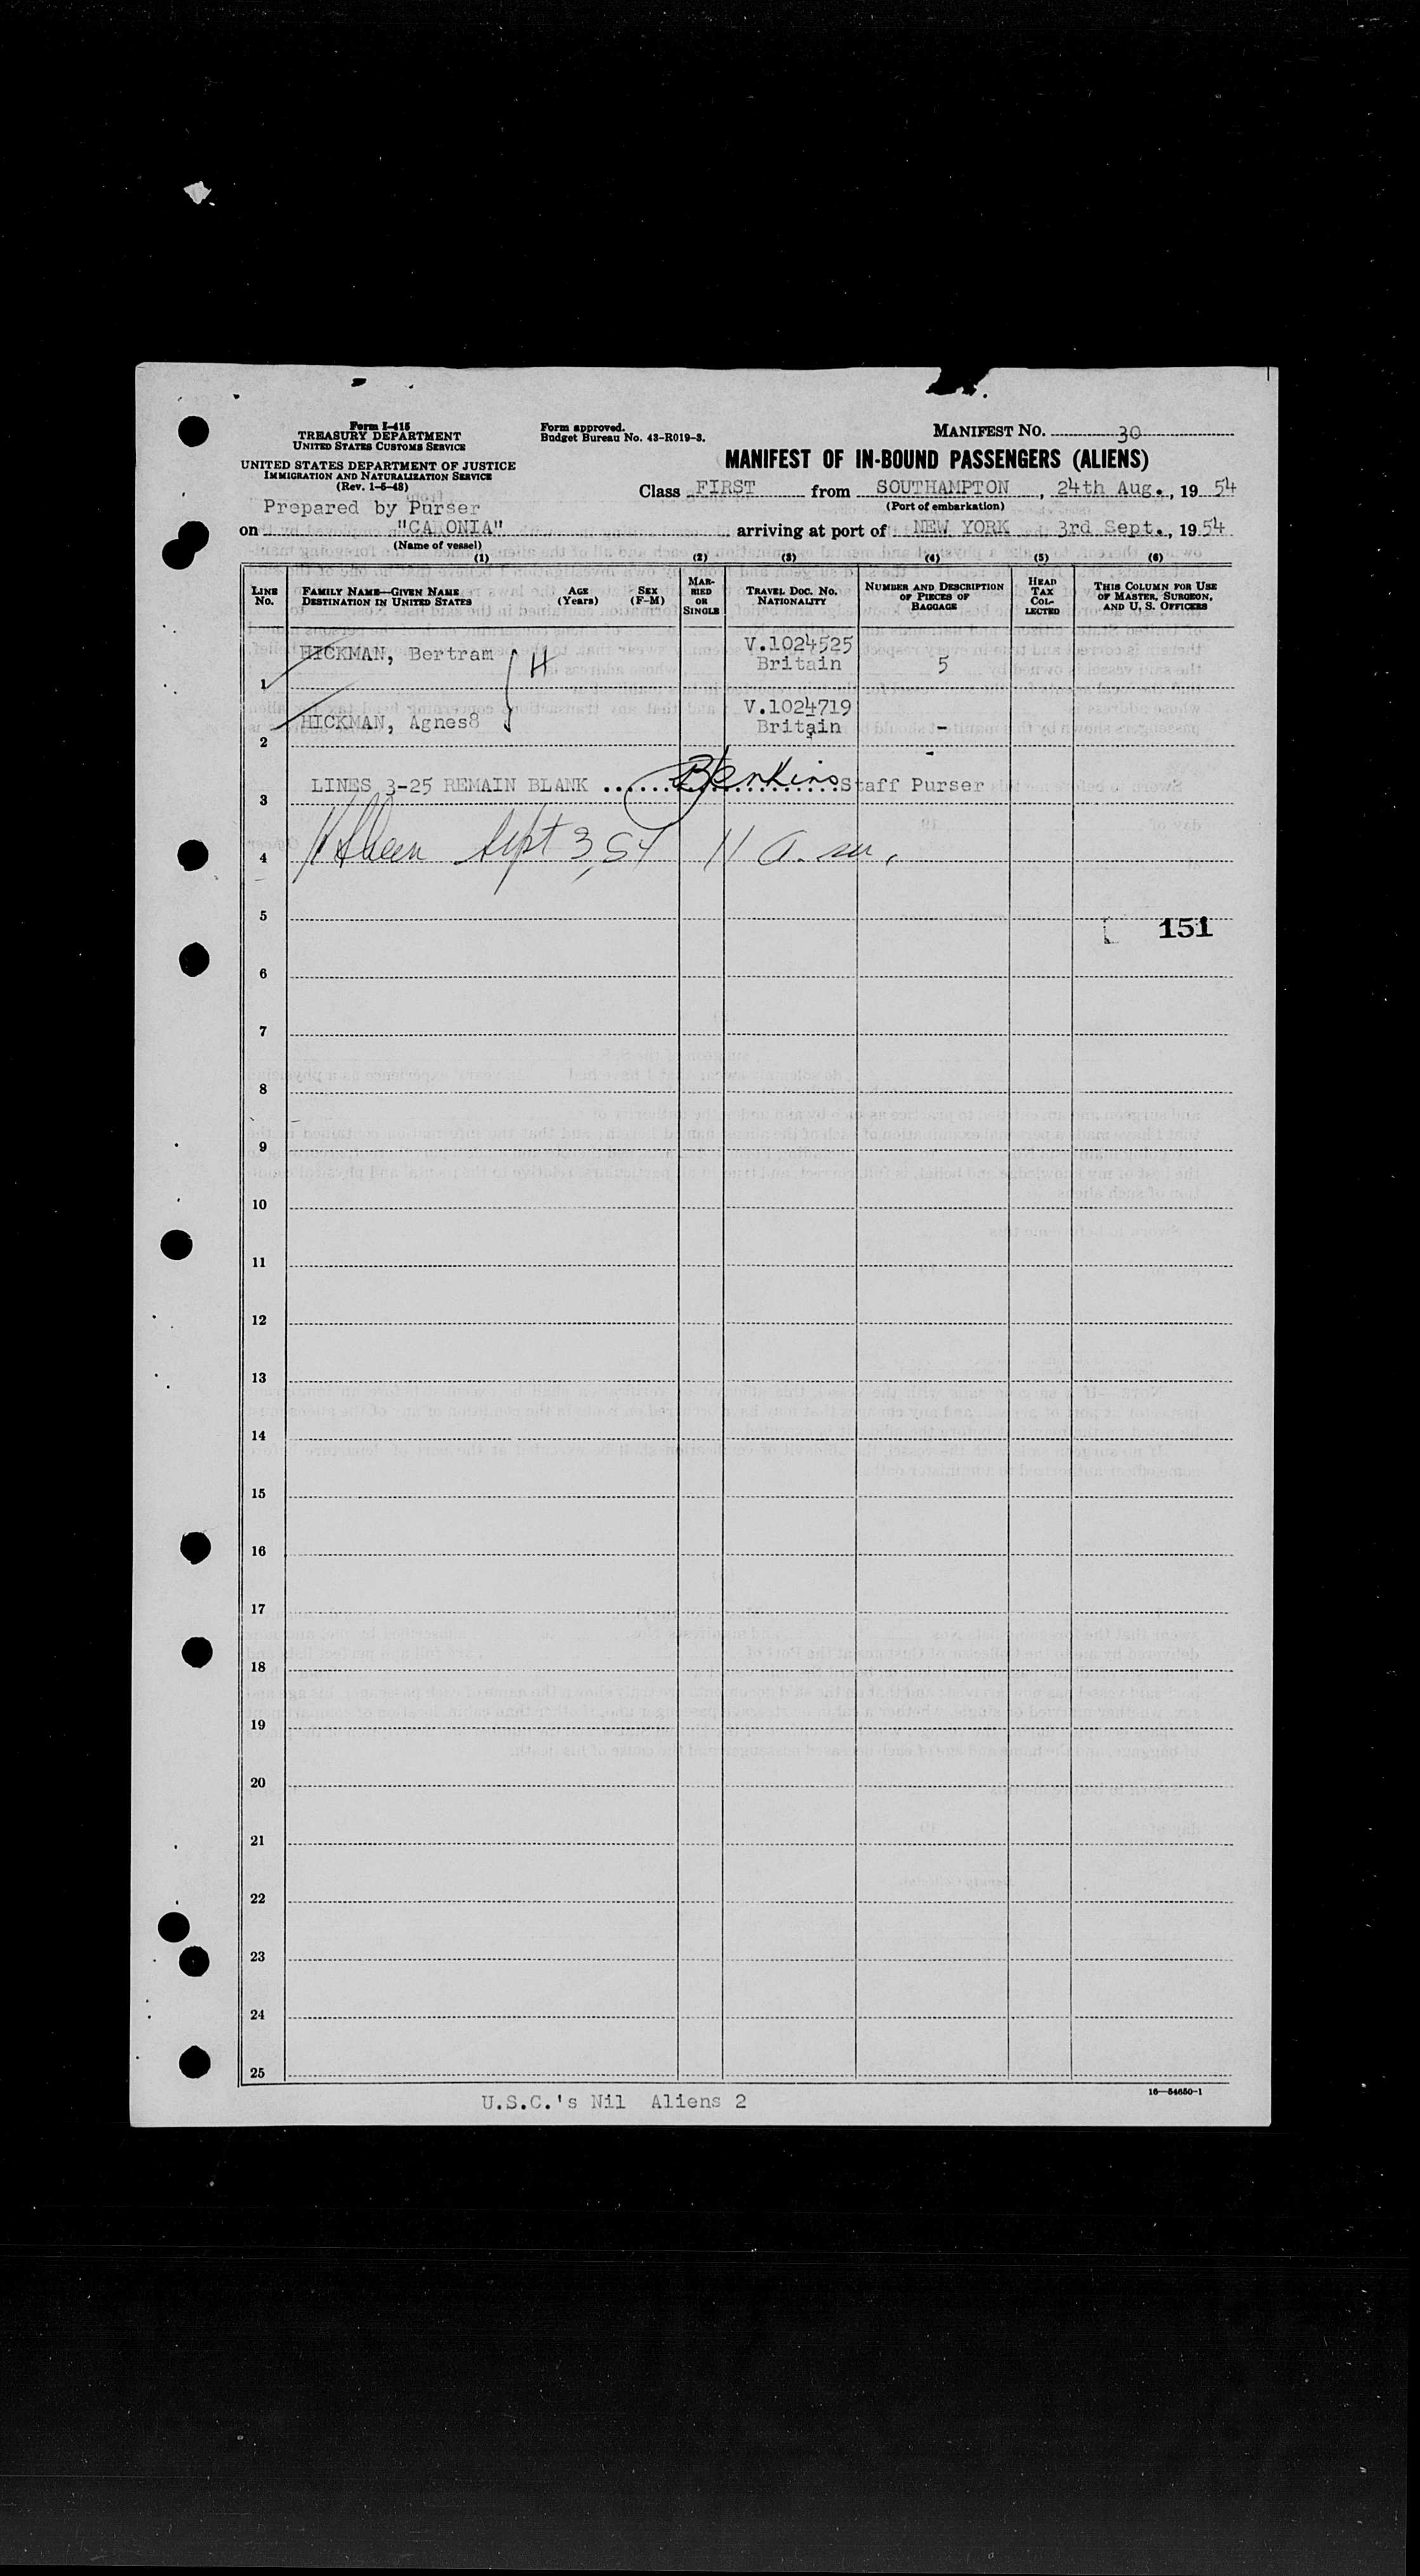 Form I-415
TREASURY DEPARTMENT
UNITED STATES CUSTOMS SERVICE
UNITED STATES DEPARTMENT OF JUSTICE
IMMIGRATION AND NATURALIZATION SERVICE
(Rev. 1-5-48)
Form approved.
Budget Bureau No. 43-R019-3.
MANIFEST NO. 30
MANIFEST OF IN-BOUND PASSENGERS (ALIENS)
Class FIRST from SOUTHAMPTON, 24th Aug., 19 54
(Port of embarkation)
Prepared by Purser
on "CARONIA" arriving at port of NEW YORK 3rd Sept., 19 54
(Name of vessel)
(1) (2) (3) (4) (5) (6)
LINE No. FAMILY NAME—GIVEN NAME DESTINATION IN UNITED STATES AGE (Years) SEX (F-M) MARRIED OR SINGLE TRAVEL DOC. NO. NATIONALITY NUMBER AND DESCRIPTION OF PIECES OF BAGGAGE HEAD TAX COLLECTED THIS COLUMN FOR USE OF MASTER, SURGEON, AND U. S. OFFICERS
HICKMAN, Bertram H V.1024525
Britain 5
1
V.1024719
HICKMAN, Agnes8 Britain -
2
LINES 3-25 REMAIN BLANK .................... Staff Purser
3
4 Sept 3, 54 11 a.m.
5
151
6
7
8
9
10
11
12
13
14
15
16
17
18
19
20
21
22
23
24
25
16—54650-1
U.S.C.'s Nil Aliens 2